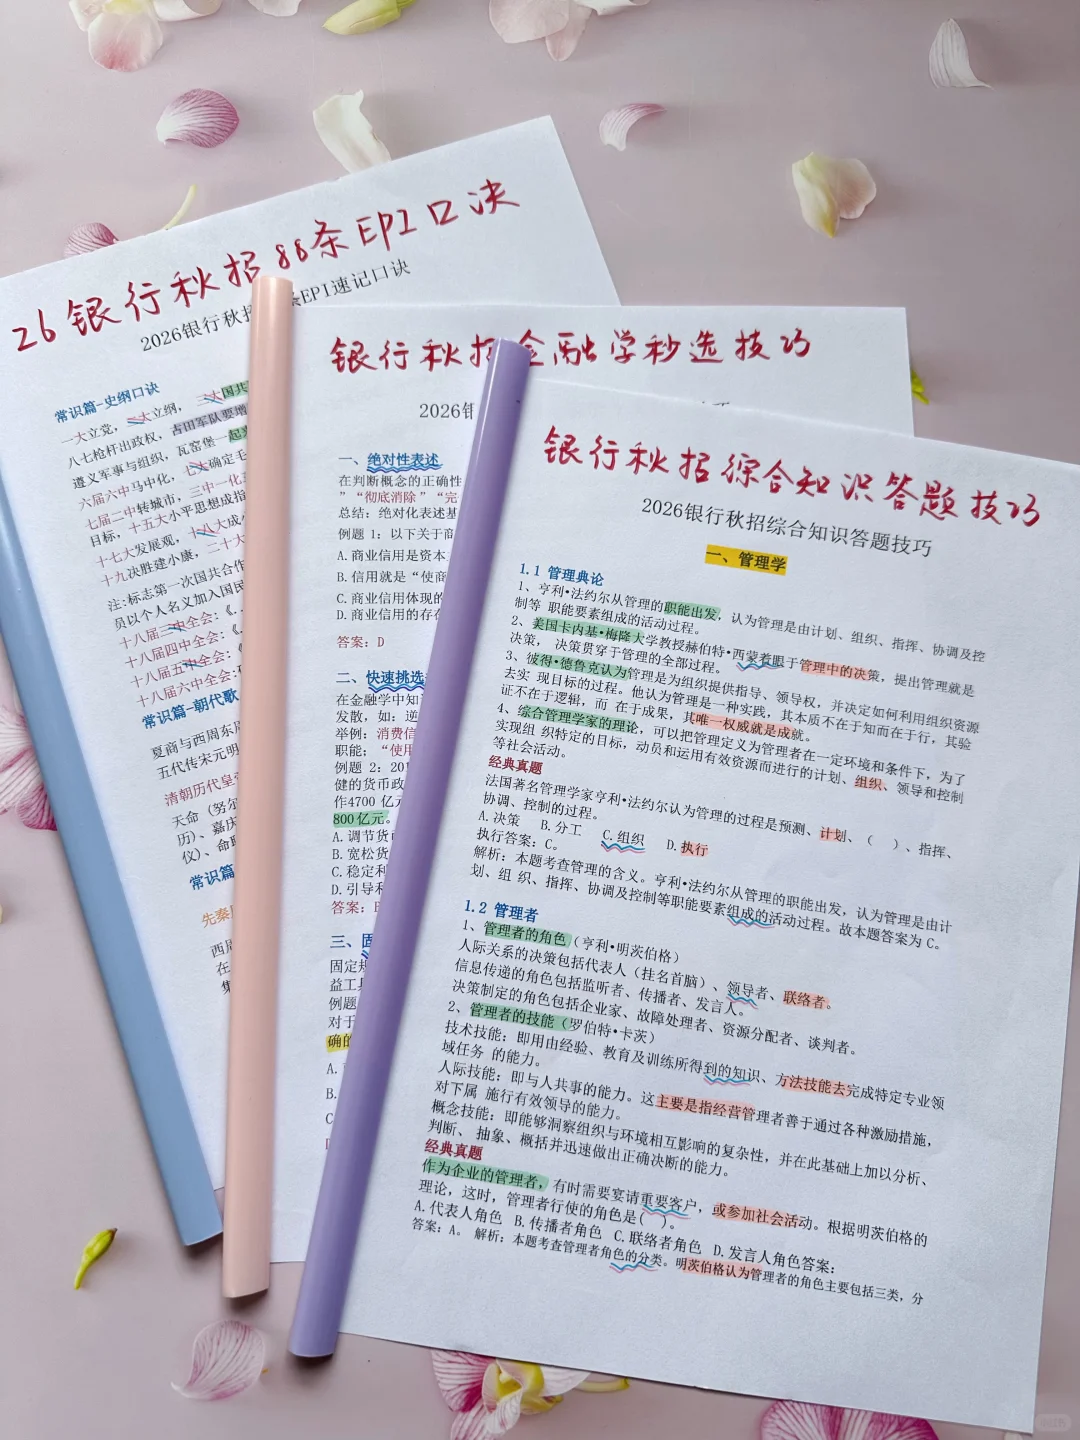 26银行秋招88条EPI口决
2026银行秋招
条EPI速记口诀
常识篇-史纲口诀
一大立党，二大立纲，三大国共
八七枪杆出政权，古田军队要增
遵义军事与组织，瓦窑堡一起
六届六中马中化，七大确定毛
七届二中转城市，三中一化
目标，十五大小平思想成指
十七大发展观，十八大成
十九决胜建小康，二十大
注：标志第一次国共合作
员以个人名义加入国民
十八届三中全会：《.
十八届四中全会：《
十八届五中全会：
十八届六中全会：
常识篇-朝代歌
夏商与西周东
五代传宋元明
清朝历代皇帝
天命（努尔
历）、嘉庆
仪）、命
常识篇
先秦
西周
在
集
银行秋招金融学秒选技巧
2026银
一、绝对性表述
在判断概念的正确性
”“彻底消除”“完
总结：绝对化表述基
例题 1：以下关于商
A.商业信用是资本
B.信用就是“使商
C.商业信用体现的
D.商业信用的存在
答案：D
二、快速挑选
在金融学中知
发散，如：逆
举例：消费信
职能：“使用
例题 2：201
健的货币政
作4700 亿元
800亿元。
A.调节货币
B.宽松货
C.稳定利
D.引导和
答案：
三、固
固定规
益工具
例题
对于
确的
A.
B.
C
银行秋招综合知识答题技巧
2026银行秋招综合知识答题技巧
一、管理学
1.1 管理典论
1、亨利•法约尔从管理的职能出发，认为管理是由计划、组织、指挥、协调及控
制等 职能要素组成的活动过程。
2、美国卡内基•梅隆大学教授赫伯特•西蒙着眼于管理中的决策，提出管理就是
决策， 决策贯穿于管理的全部过程。
3、彼得•德鲁克认为管理是为组织提供指导、领导权，并决定如何利用组织资源
去实 现目标的过程。他认为管理是一种实践，其本质不在于知而在于行，其验
证不在于逻辑，而 在于成果，其唯一权威就是成就。
4、综合管理学家的理论，可以把管理定义为管理者在一定环境和条件下，为了
实现组 织特定的目标，动员和运用有效资源而进行的计划、组织、领导和控制
等社会活动。
经典真题
法国著名管理学家亨利•法约尔认为管理的过程是预测、计划、（ ）、指挥、
协调、控制的过程。
A.决策 B.分工 C.组织 D.执行
执行答案：C。
解析：本题考查管理的含义。亨利•法约尔从管理的职能出发，认为管理是由计
划、组 织、指挥、协调及控制等职能要素组成的活动过程。故本题答案为 C。
1.2 管理者
1、管理者的角色（亨利•明茨伯格）
人际关系的决策包括代表人（挂名首脑）、领导者、联络者。
信息传递的角色包括监听者、传播者、发言人。
决策制定的角色包括企业家、故障处理者、资源分配者、谈判者。
2、管理者的技能（罗伯特•卡茨）
技术技能：即用由经验、教育及训练所得到的知识、方法技能去完成特定专业领
域任务 的能力。
人际技能：即与人共事的能力。这主要是指经营管理者善于通过各种激励措施，
对下属 施行有效领导的能力。
概念技能：即能够洞察组织与环境相互影响的复杂性，并在此基础上加以分析、
判断、 抽象、概括并迅速做出正确决断的能力。
经典真题
作为企业的管理者，有时需要宴请重要客户，或参加社会活动。根据明茨伯格的
理论，这时，管理者行使的角色是( )。
A.代表人角色 B.传播者角色 C.联络者角色 D.发言人角色答案：
答案：A。 解析：本题考查管理者角色的分类。明茨伯格认为管理者的角色主要包括三类，分